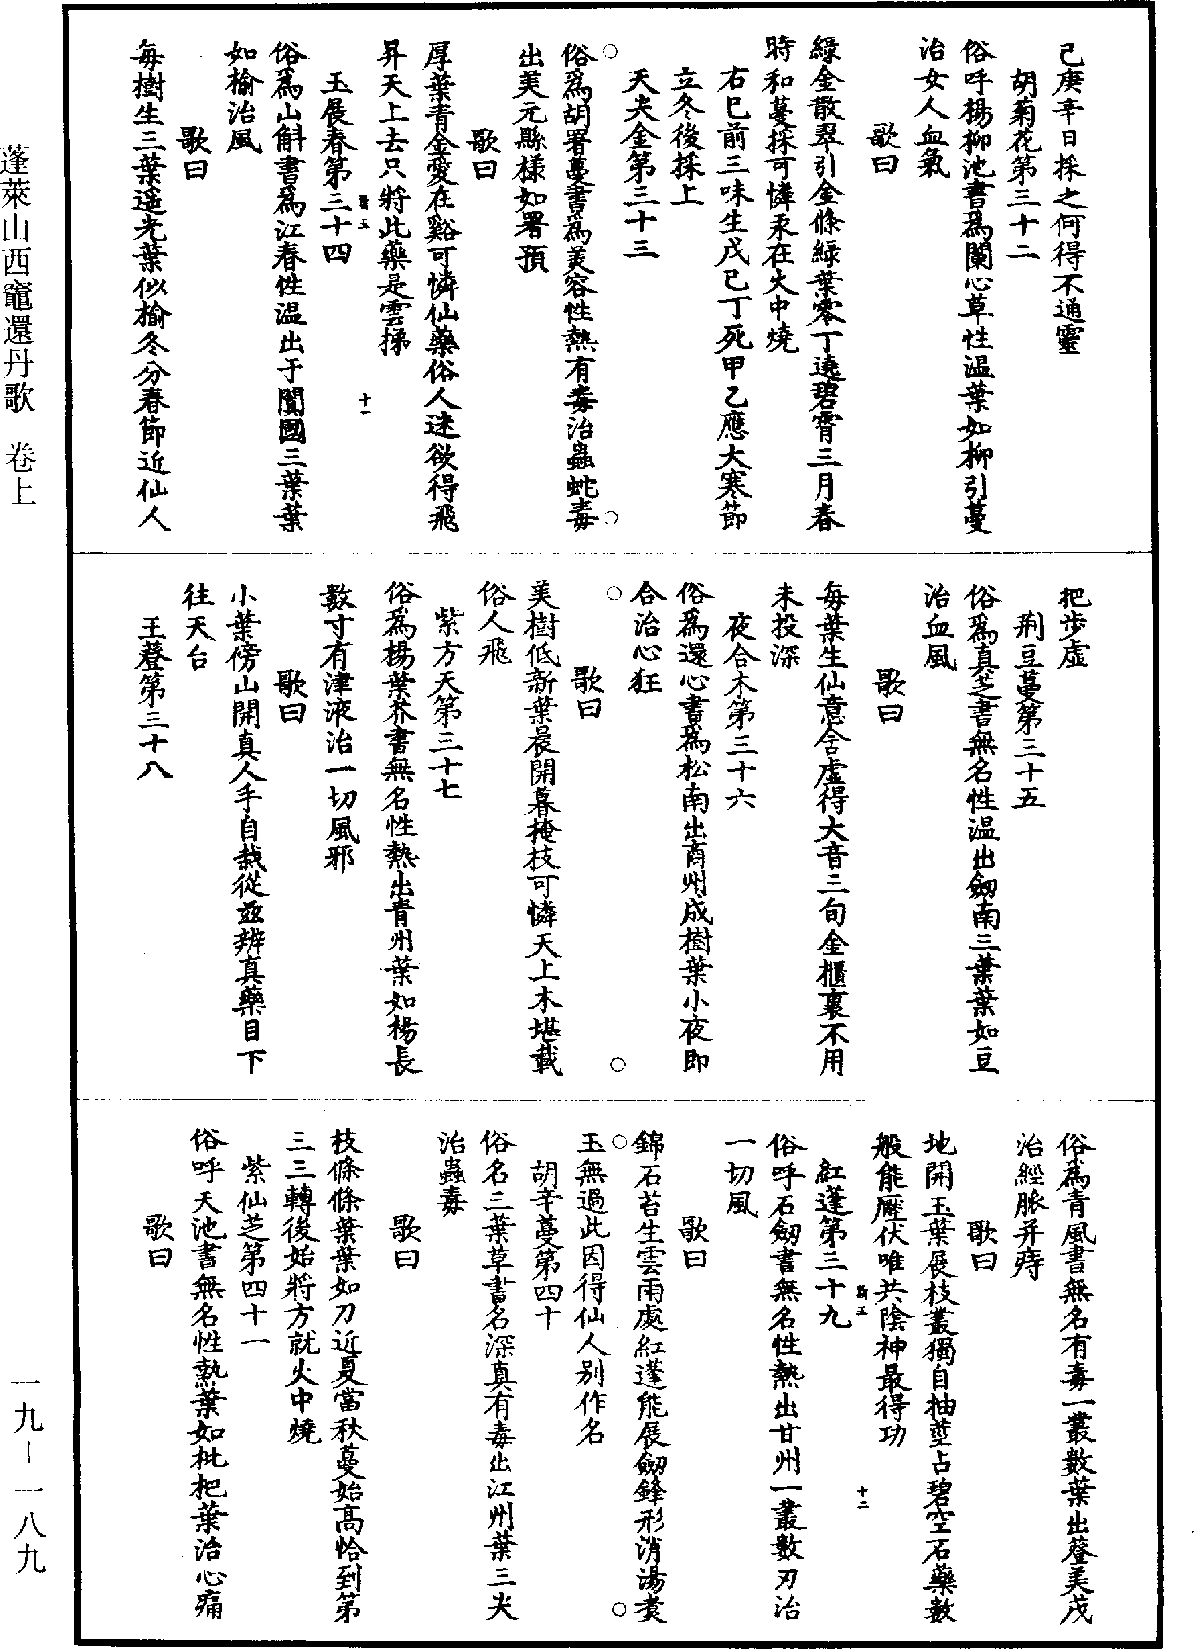 己庚辛日採之何得不通靈
胡菊花第三十二
俗呼楊柳池書為蘭心草性温葉如柳引蔓
治女人血氣
歌曰
緑金散翠引金條緑葉零丁遶碧霄三月春
時和蔓採可憐汞在火中燒
右巳前三味生戊巳丁死甲乙應大寒節
立冬後採上
天夾金第三十三
俗為胡署蔓書為美容性熱有毒治蟲蛇毒
出美元縣樣如署預
歌曰
厚葉青金愛在谿可憐仙藥俗人迷欲得飛
昇天上去只將此藥是雲梯
斯五 十一
玉展春第三十四
俗為山斛書為江春性温出于闐國三葉葉
如榆治風
歌曰
每樹生三葉遥光葉似榆冬分春節近仙人
把步虛
荆豆蔓第三十五
俗為真芝書無名性温出劒南三葉葉如豆
治血風
歌曰
每葉生仙意含虛得大音三旬金櫃裏不用
未投深
夜合木第三十六
俗為還心書為松南出商州成樹葉小夜即
合治心狂
歌曰
美樹低新葉晨開暮掩枝可憐天上木堪載
俗人飛
紫方天第三十七
俗為楊葉芥書無名性熱出青州葉如楊長
數寸有津液治一切風邪
歌曰
小葉傍山開真人手自栽從兹辨真藥目下
往天台
王簦第三十八
俗為青風書無名有毒一叢數葉出簦美茂
治經脈并痔
歌曰
地開玉葉展枝叢獨自抽莖占碧空石藥數
般能壓伏唯共陰神最得功
斯五 十二
紅蓬第三十九
俗呼石劒書無名性熱出甘州一叢數刃治
一切風
歌曰
錦石苔生雲雨處紅蓬能展劒鋒形消湯煮
玉無過此因得仙人别作名
胡辛蔓第四十
俗名三葉草書名深真有毒出江州葉三尖
治蟲毒
歌曰
枝條條葉葉如刀近夏當秋蔓始高恰到第
三三轉後始將方就火中燒
紫仙芝第四十一
俗呼天池書無名性熱葉如枇杷葉治心痛
歌曰
蓬萊山西竈還丹歌 卷上
一九—一八九